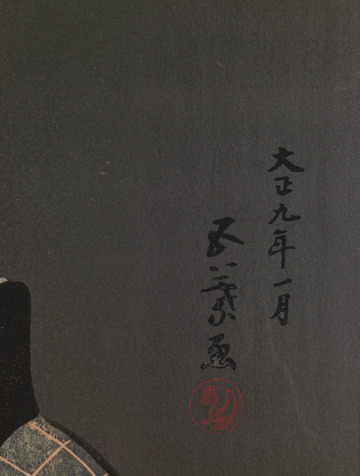 大正九年一月
五葉画